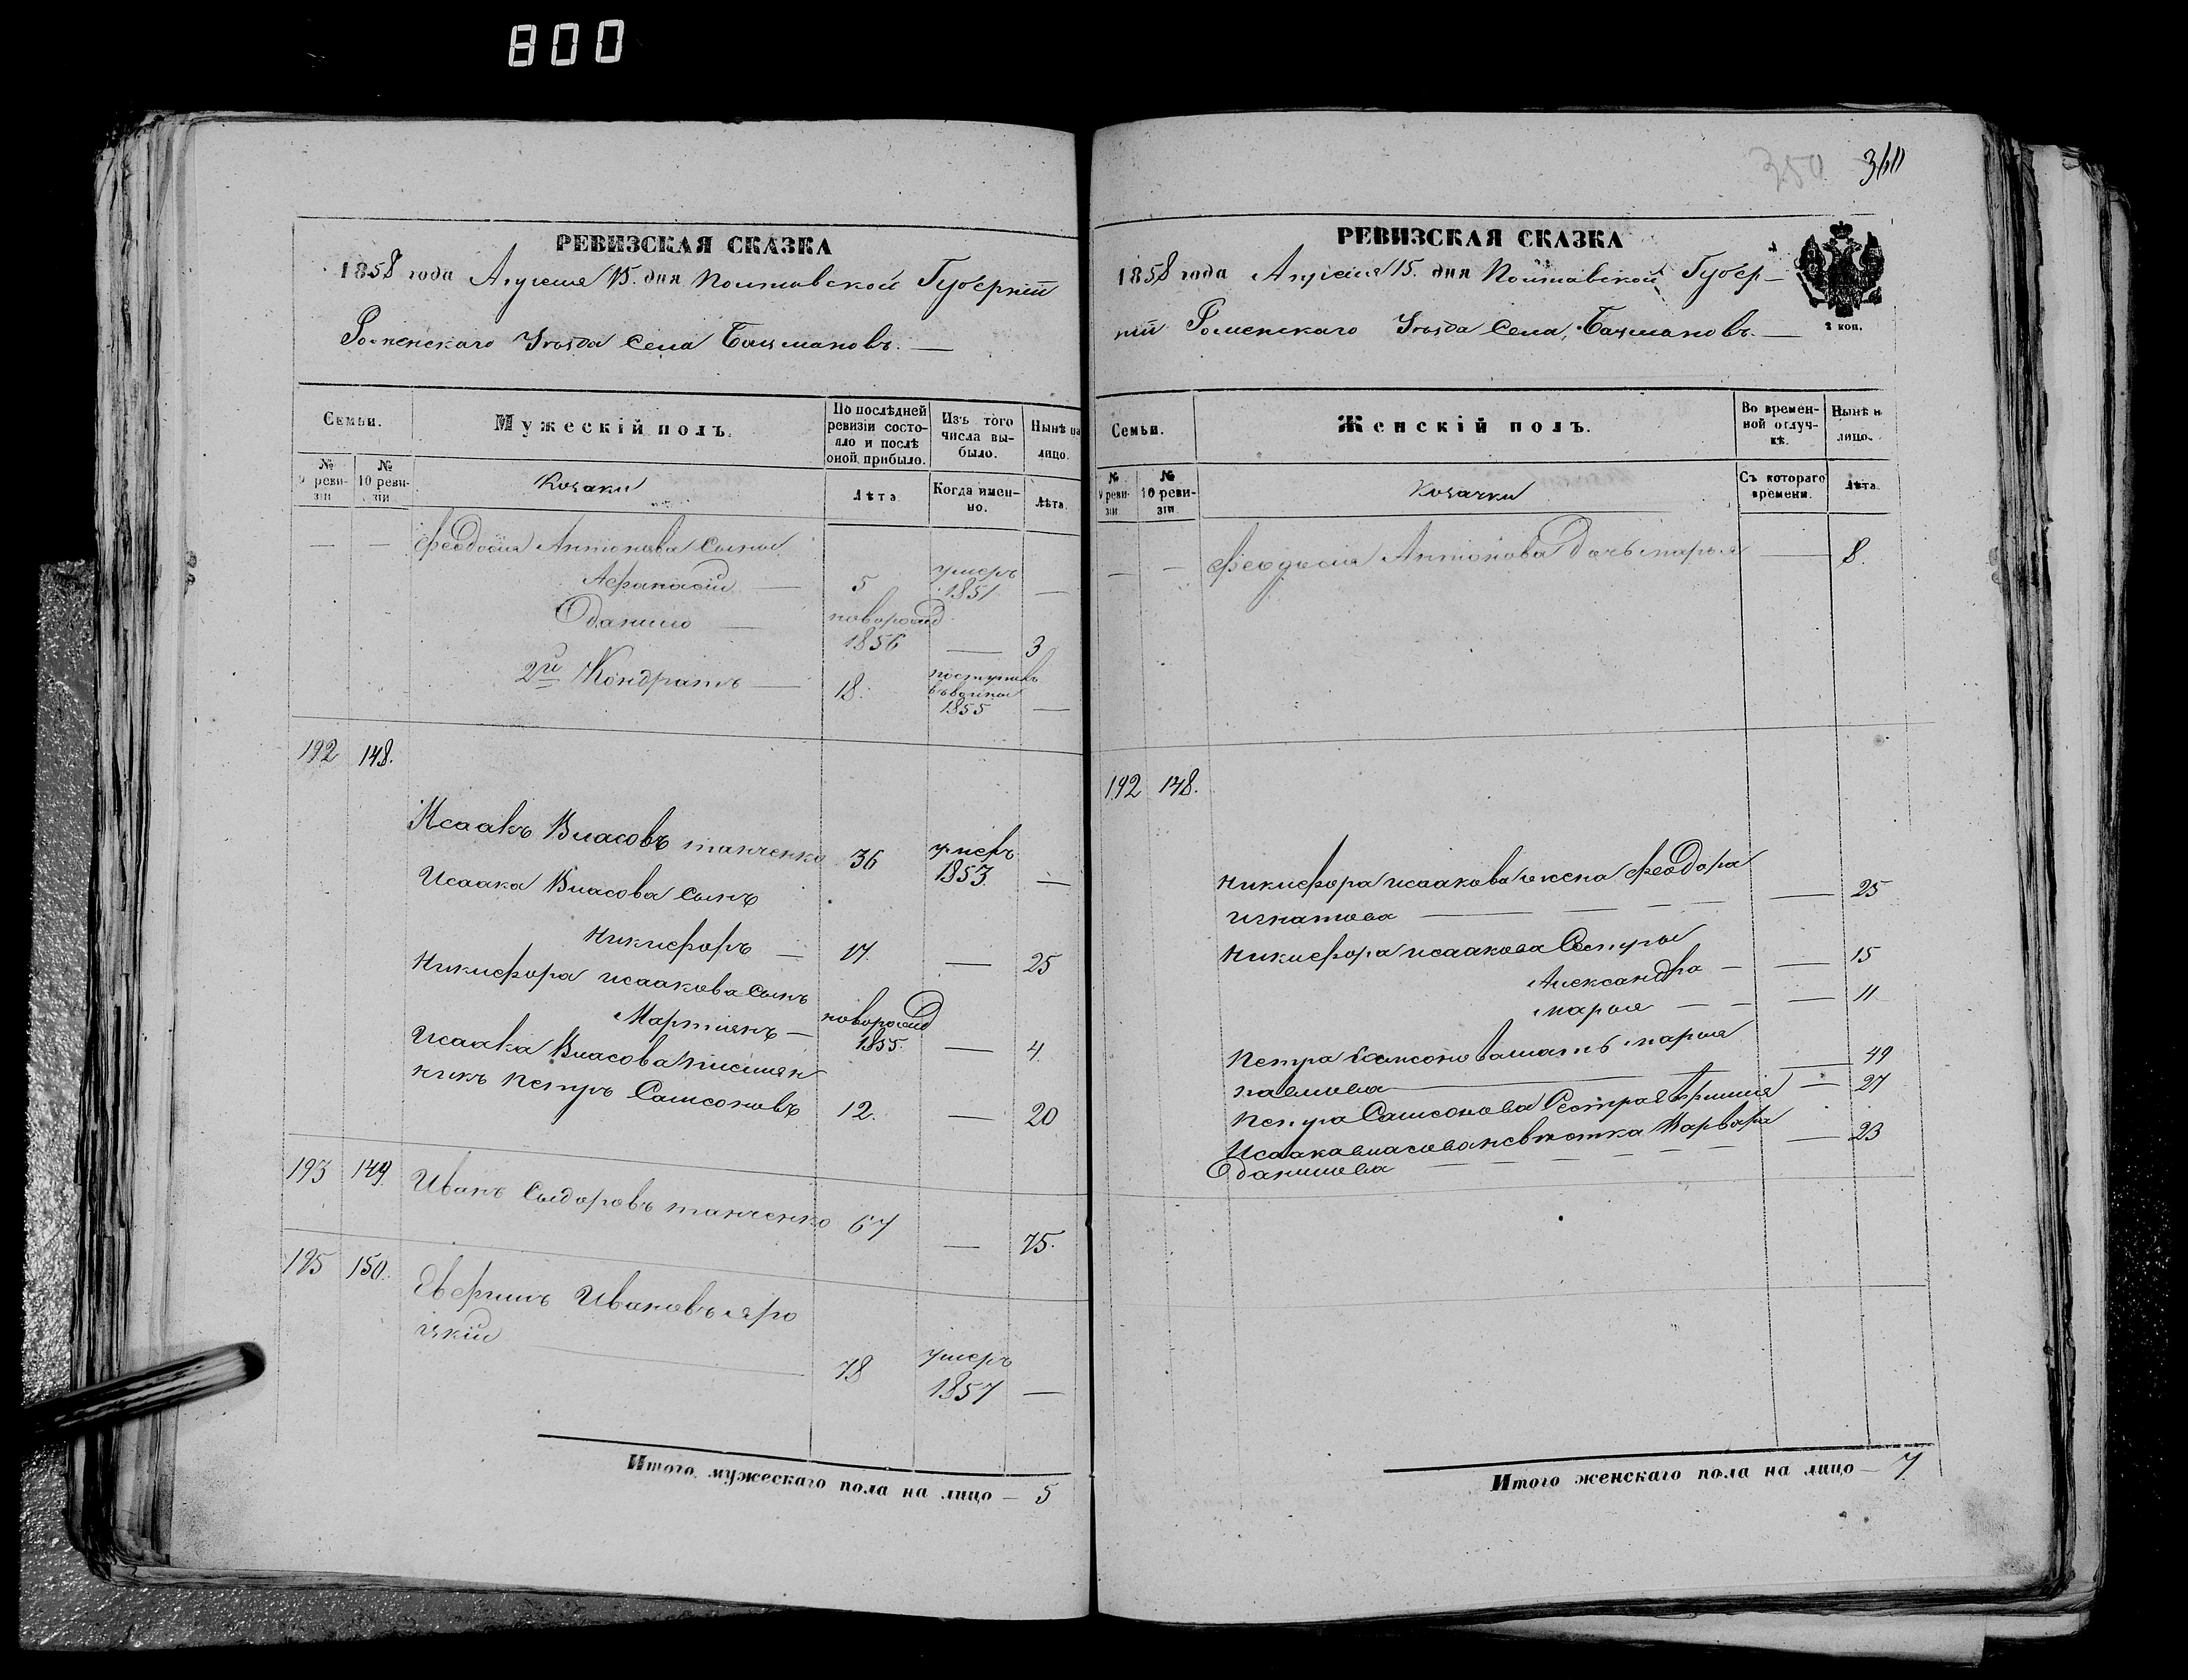 800
РЕВИЗСКАЯ СКАЗКА
1858 года Апреля 15. дня Полтавской Губернїи
Роменского Уѣзда Села Бацмановъ. —
Семьи.
Мужескій полъ.
По послѣдней ревизіи состояло и послѣ оной прибыло.
Изъ того числа выбыло.
Нынѣ на лицо.
№ 9 ревизіи
№ 10 ревизіи
Козаки
Лѣта
Когда именно.
Лѣта.
— — Феодосия Антонова сыны
Афанасій — 5 умеръ 1851 —
Данило — новорожд 1856 — 3
2й Кондратъ — 18. поступилъ въ 1855 —
192 148.
Исаакъ Власовъ танченко 36 умеръ 1853 —
Исаака Власова сынъ
Никифоръ — 17. — 25
Никифора исаакова сынъ
Мартинъ — новорожд 1855. — 4.
Исаака Власова племян
никъ петръ Самсоновъ 12. — 20
193 149. Иванъ Сыдоровъ танченко 67 — 75.
195 150. Ивановъ яро
цкій 78 умеръ 1857 —
Итого мужескаго пола на лицо — 5
350 360
РЕВИЗСКАЯ СКАЗКА
1858 года Апреля 15. дня Полтавской Губер-
нїи Роменскаго Уѣзда Села, Бацмановъ. —
2 коп.
Семьи.
Женскій полъ.
Во временной отлучкѣ.
Нынѣ на лицо.
№ 9 ревизіи
№ 10 ревизіи.
Козачки
Съ котораго времени.
Лѣта
— — Феодосия Антонова Дочь марья — 8.
192 148.
Никифора исаакова жена феодора
игнатова — — — — — 25
Никифора исаакова Сестры
Александра — — 15
марья — — — 11
Петра Самсонова мать марья
павлова — — 49
Петра Самсонова Сестра — 27
Исаака власова невѣстка Варвара — 23
Данилова — — — — — —
Итого женскаго пола на лицо — 7